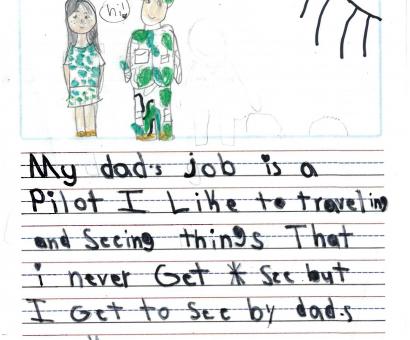 hi!
My dad.s job is a
Pilot I Like to traveling
and Seeing things That
i never Get * See but
I Get to See by dad.s